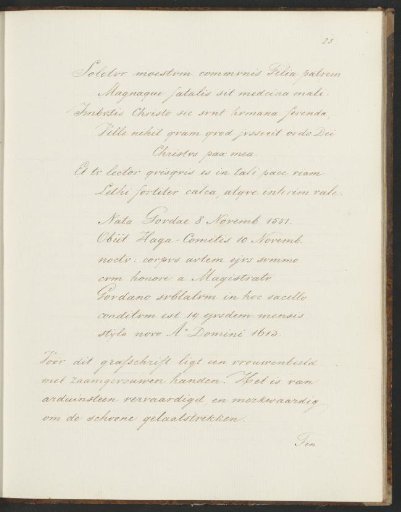 23
Soletvr moestvm commvnis Filia patrem
Magnaque fatalis sit medcina mali.
Imbvtis Christo sic svnt hvmana ferenda
Velle nihil qvam qvod jvsserit ordo Dei
Christvs pax mea.
Et te lector qvisqvis es in tali pace viam
Lethi fortiter calca, atqve interim vale.
Nata Govdae 8 Novemb. 1551.
Obiit Haga-Comitis 10 Novemb.
noctv: corpvs avtem ejvs svmmo
cvm honore a Magistratv
Govdano svblatvm in hoc sacello
conditvm est 19 ejvsdem mensis
stijlo novo Aº Domini 1613.
Voor dit grafschrift ligt een vrouwenbeeld
met zaamgevouwen handen. Het is van
arduinsteen vervaardigd en merkwaardig
om de schoone gelaatstrekken.
Ten